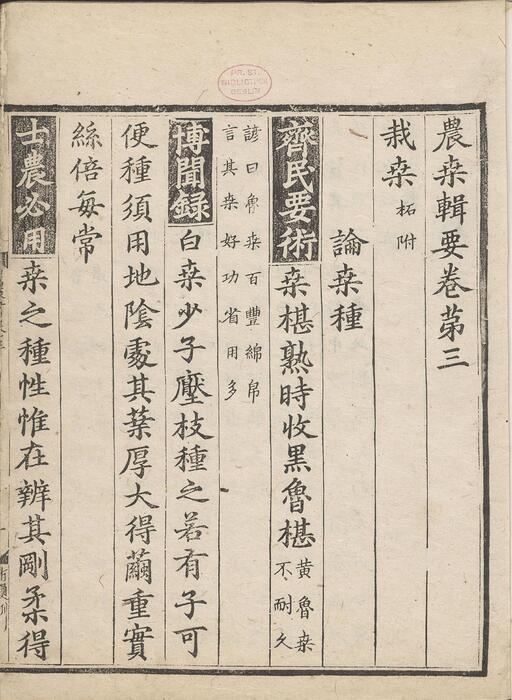 農桒輯要卷苐三
栽桒柘附
論桒種
齊民要術桒椹熟時收黑魯椹黃魯桒不耐久
諺曰魯桒百豐綿帛
言其桒好功省用多
博聞録白桒少子壓枝種之若有子可
便種須用地隂處其葉厚大得繭重實
絲倍每常
士農必用桒之種性惟在辨其剛柔得
PR. ST.
BIBLIOTHEK
BERLIN